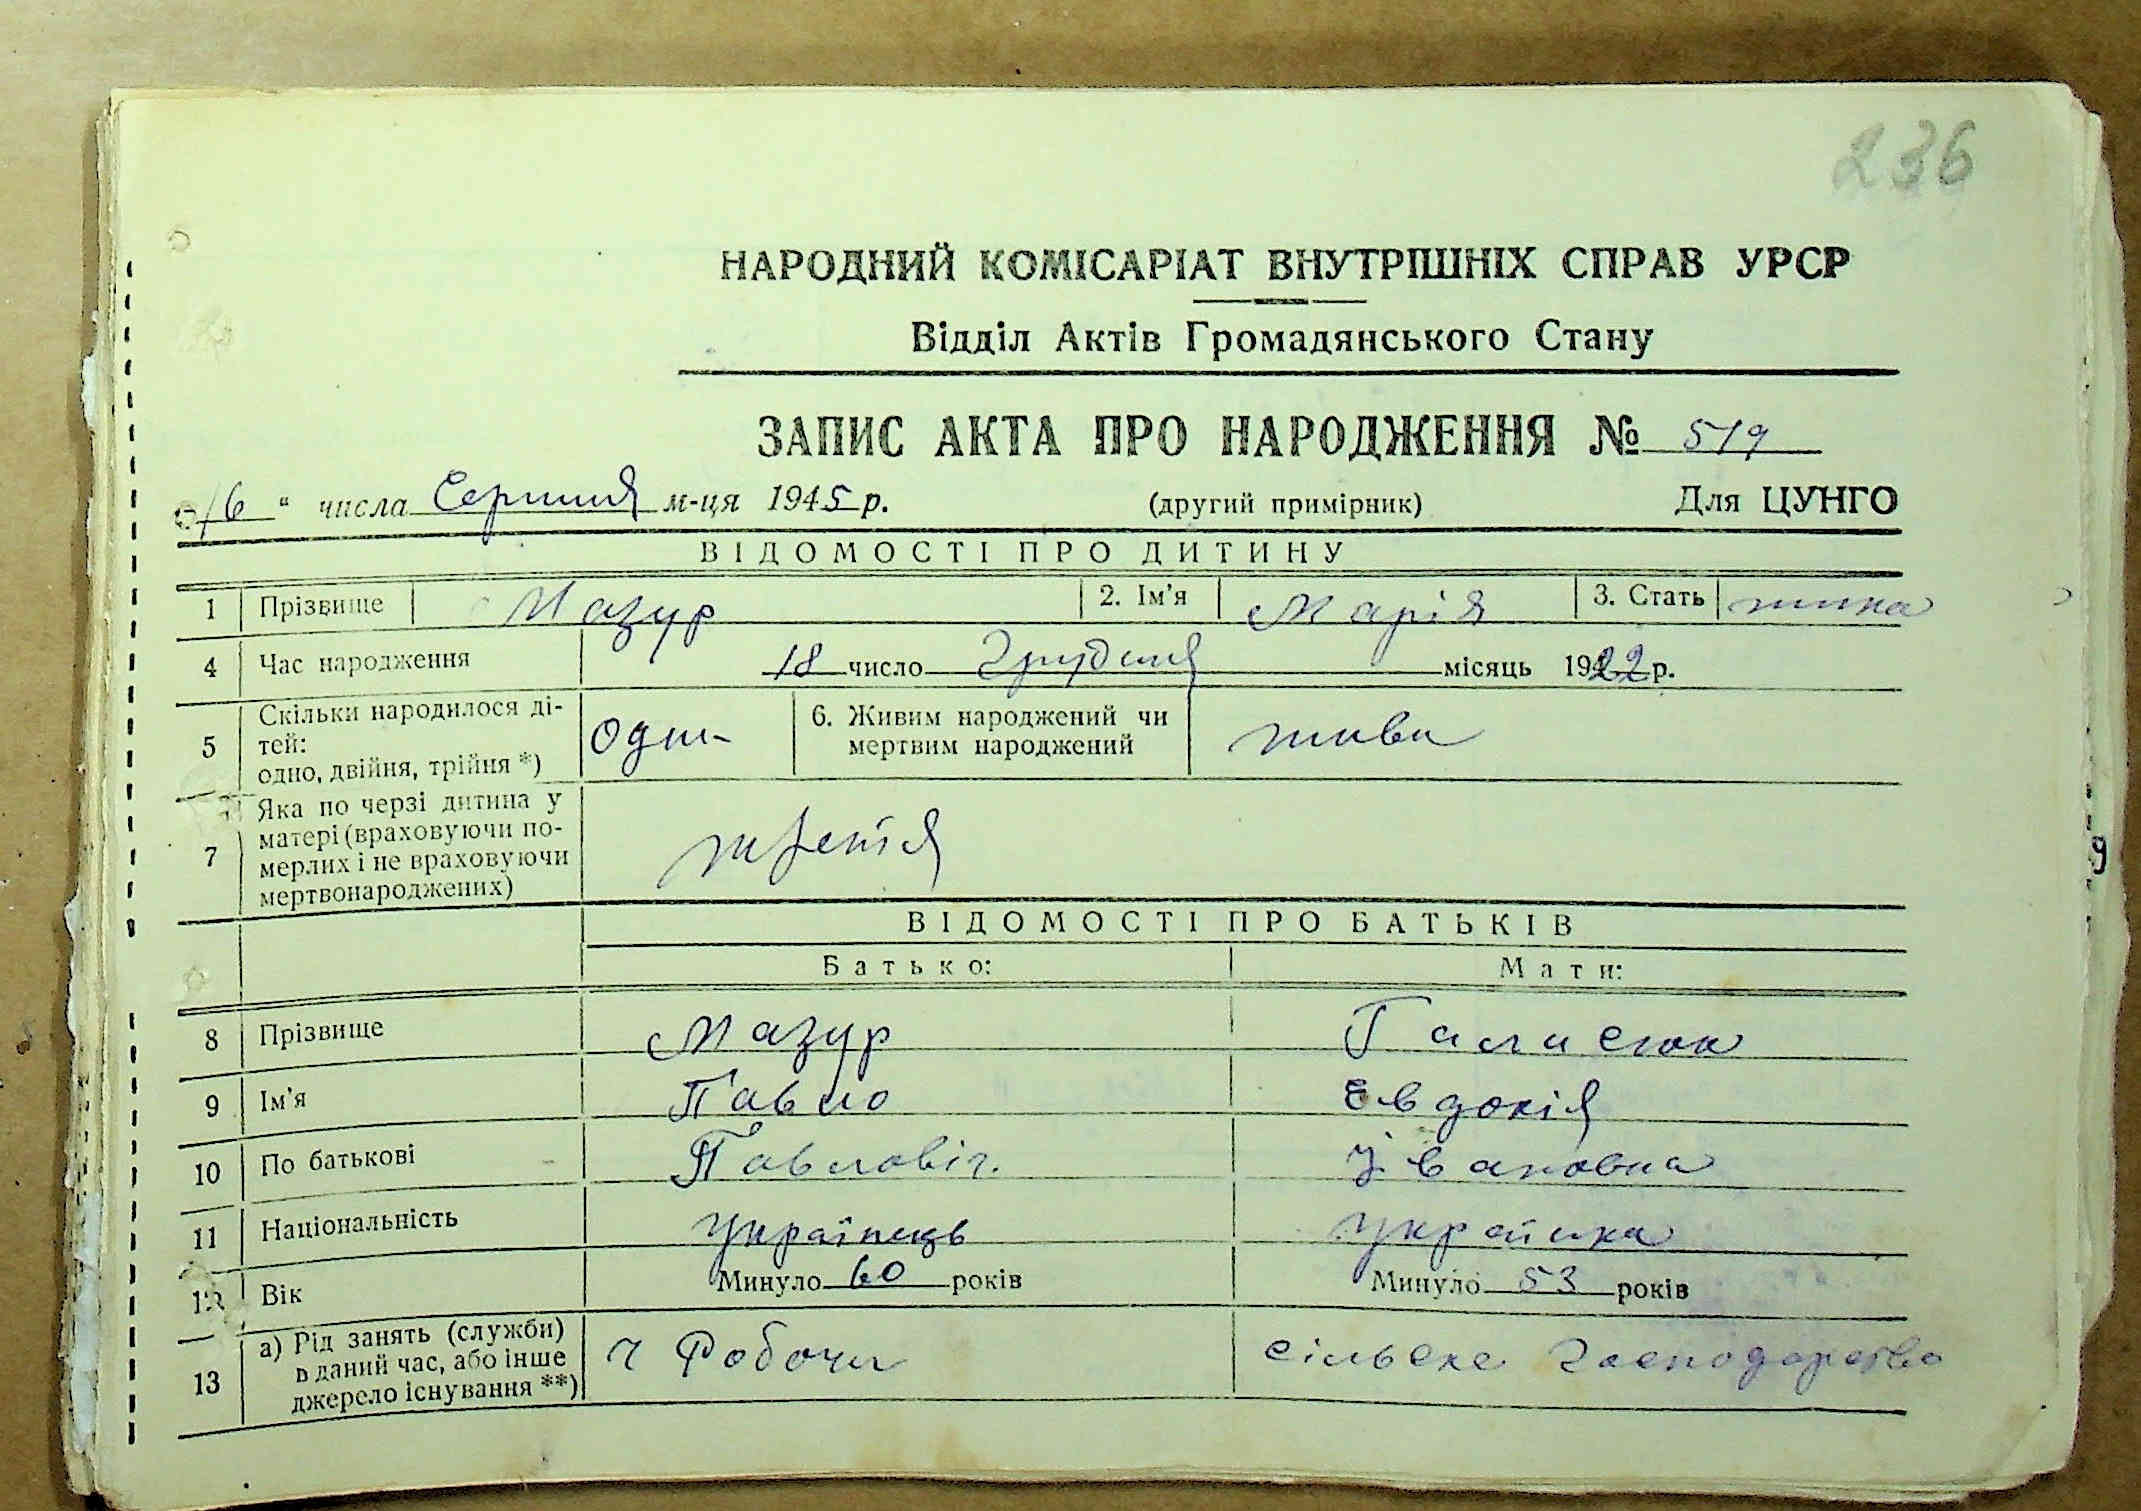 236
НАРОДНИЙ КОМІСАРІАТ ВНУТРІШНІХ СПРАВ УРСР
Відділ Актів Громадянського Стану
ЗАПИС АКТА ПРО НАРОДЖЕННЯ № 519
16 " числа Серпня м-ця 1945 р. (другий примірник) Для ЦУНГО
ВІДОМОСТІ ПРО ДИТИНУ
1 Прізвище Мазур 2. Ім'я Марія 3. Стать жінка
4 Час народження 18 число Грудня місяць 1922 р.
5 Скільки народилося ді-
тей:
одно, двійня, трійня *) Одна 6. Живим народжений чи
мертвим народжений жива
7 Яка по черзі дитина у
матері (враховуючи по-
мерлих і не враховуючи
мертвонароджених) третія
ВІДОМОСТІ ПРО БАТЬКІВ
Батько: Мати:
8 Прізвище Мазур
9 Ім'я Павло Евдокія
10 По батькові Павловіч. Івановна
11 Національність Українець Українка
12 Вік Минуло 60 років Минуло 53 років
13 а) Рід занять (служби)
в даний час, або інше
джерело існування **) Робочи сільске господарство